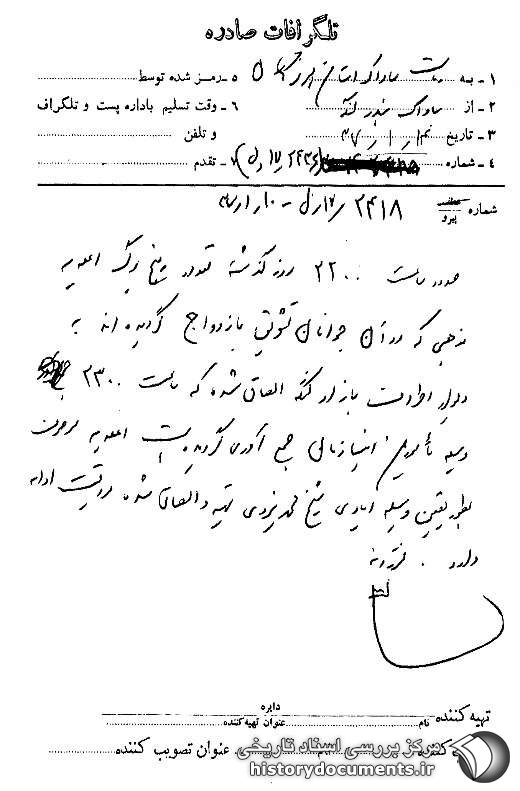 تلگرافات صادره
۱ـ به ریاست ساواک استان هرمزگان ۵ـ رمز شده توسط
۲ـ از ساواک بندر لنگه ۶ـ وقت تسلیم باداره پست و تلگراف
۳ـ تاریخ ۴۷/۱/ و تلفن
۴ـ شماره ۷ـ تقدم
شماره ۲۴۱۸ /۱۷ل - ۱۰/
عطف
پیرو
حدود ساعت ۲۲۰۰ روز گذشته تعدادی برگ اعلامیه
مذهبی که در آن جوانان تشویق بازدواج گردیده اند به
دیوار اطراف بازار لنگه الصاق شده که ساعت ۲۳۰۰
وسیله مأمورین انتظامی جمع آوری گردیده است اعلامیه مزبور
بطور یقین وسیله ایادی شیخ محمد یزدی تهیه و الصاق شده مراقبت ادامه
دارد .
تهیه کننده نام دایره عنوان تهیه کننده
عنوان تصویب کننده
مرکز بررسی اسناد تاریخی
historydocuments.ir